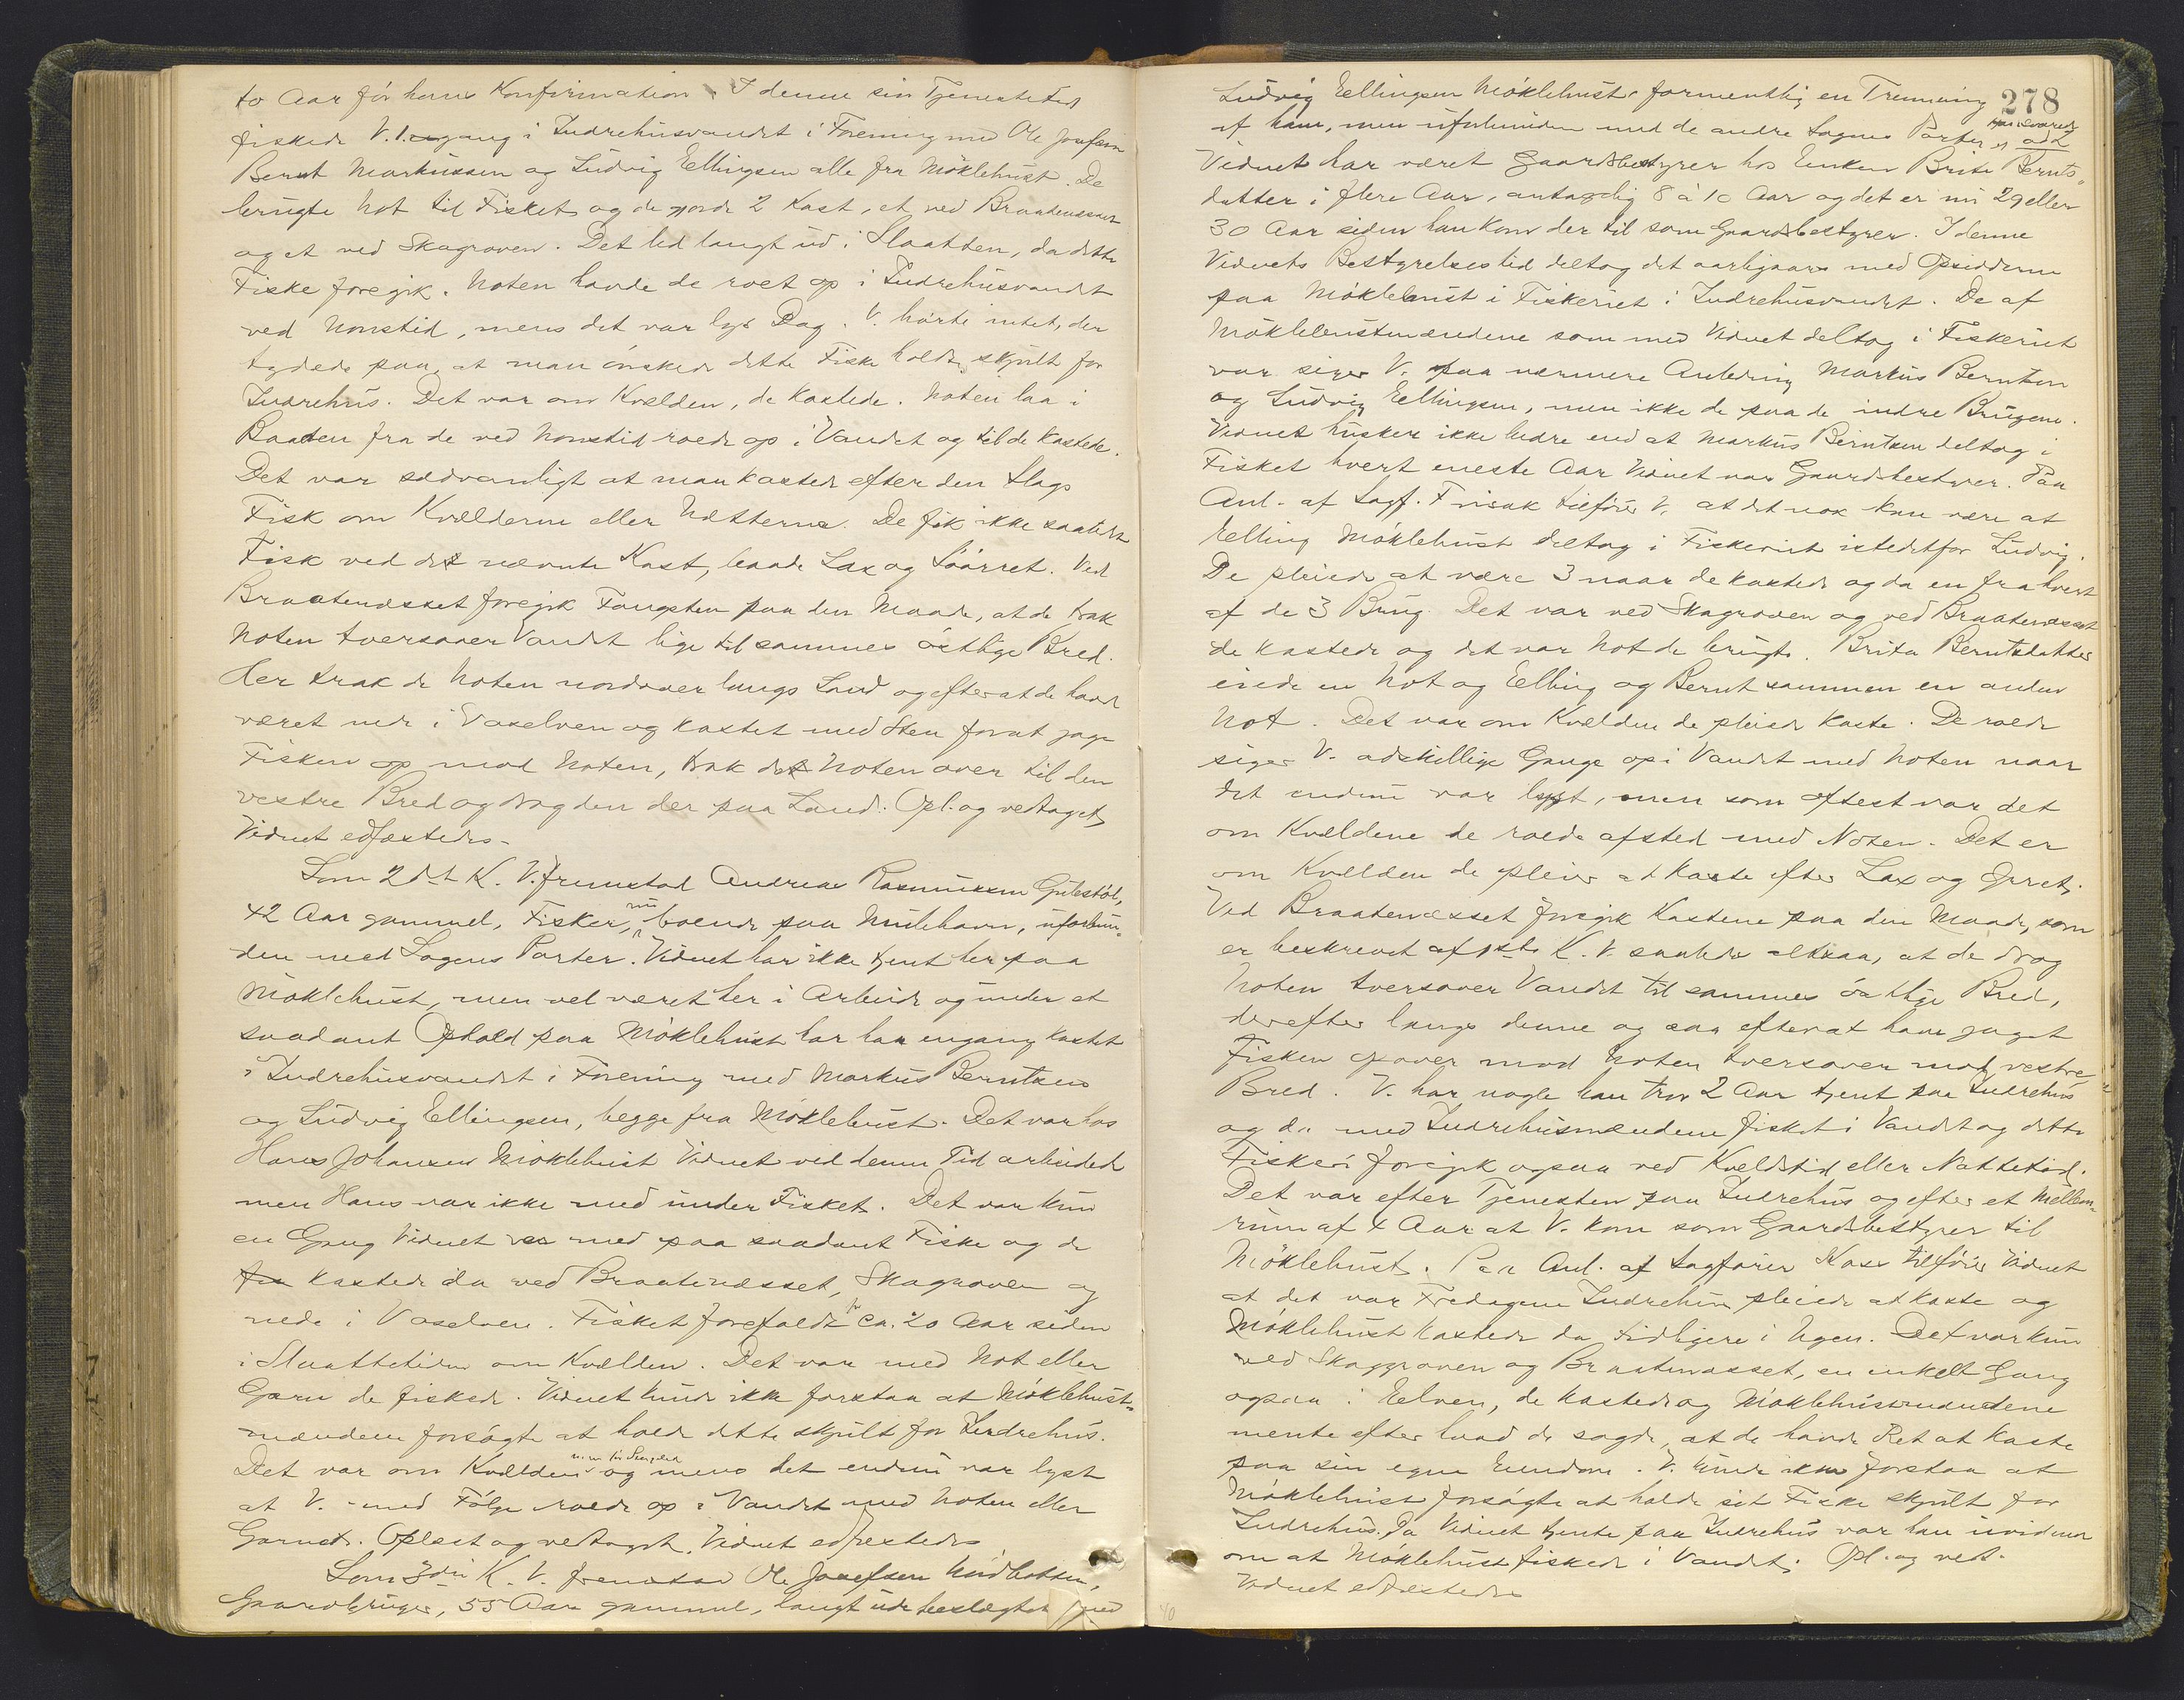 to Aar før hans Konfirmation. I denne sin Tjenestetid
fiskede V. 1. gang i Indrehusvandet i Forening med Ole Josefsen
Bernt Markussen og Ludvig Ellingsen alle fra Møklebust. De
brugte Not til Fisket og de gjorde 2 Kast, et ved Braatenesset
og et ved Skagroven. Det led langt ud i Slaatten, da dette
Fiske foregik. Noten havde de roet op i Indrehusvandet
ved Nonstid, mens det var lys Dag. V. hørte intet, der
tydede paa, at man ønskede dette Fiske holdt skjult for
Indrehus. Det var om Kvælden, de kastede. Noten laa i
Baaden fra de ved Nonstid roede op i Vandet og til de kastede.
Det var sædvanligt at man kastede efter den Slags
Fisk om Kvælderne eller Nætterne. De fik ikke saaledt
Fisk ved det nævnte Kast, baade Lax og Søørret. Ved
Braatenæsset foregik Fangsten paa den Maade, at de trak
Noten tversover Vandet lige til sammes østlige Bred.
Her trak de Noten nordover langs Land og efterat de havde
været nede i Vaselven og kastet med Sten forat jage
Fisken op mod Noten, trak de Noten over til den
vestre Bred og drog den der paa Land. Opl. og vedtaget,
Vidnet edfæstedes.
Som 2det K. V. fremstod Andreas Rasmussen Gilestøl,
42 Aar gammel, Fisker, nu boende paa Mulehavn, uforbun-
den med Sagens Parter. Vidnet har ikke tjent her paa
Møklebust, men vel været her i Arbeide og under et
saadant Ophold paa Møklebust har han engang kastet
i Indrehusvandet i Forening med Markus Berntsen
og Ludvig Ellingsen, begge fra Møklebust. Det var hos
Hans Johansen Møklebust Vidnet ved denne Tid arbeidede
men Hans var ikke med under Fisket. Det var kun
en Gang Vidnet var med paa saadant Fiske og de
kastede da ved Braatenæsset, Skagroven og
nede i Vaselven. Fisket forefaldt for ca. 20 Aar siden
i Slaattetiden om Kvælden. Det var med Not eller
Garn de fiskede. Vidnet kunde ikke forstaa at Møklebust-
mændene forsøgte at holde dette skjult for Indrehus.
Det var om Kvælden og mens det endnu var lyst
at V. med Følge roede op i Vandet med Noten eller
Garnet. Oplæst og vedtaget. Vidnet edfæstedes
Som 3die K. V. fremstod Ole Josefsen Nordbotten,
Gaardbruger, 55 Aar gammel, langt ude beslægtet med
278
Ludvig Ellingsen Møklebust formentlig en Tremening
af ham, men uforbunden med de andre Sagens Parter
Vidnet har været Gaardsbestyrer hos Enken Brite Bernts-
datter i flere Aar, antagelig 8 à 10 Aar og det er nu 29 eller
30 Aar siden han kom der til som Gaardsbestyrer. I denne
Vidnets Bestyrelsestid deltog det aarligaars med Opsidderne
paa Møklebust i Fiskeriet i Indrehusvandet. De af
Møklebustmændene som med Vidnet deltog i Fiskeriet
var siger V. paa nærmere Anledning Markus Berntsen
og Ludvig Ellingsen, men ikke de paa de indre Brugene.
Vidnet husker ikke bedre end at Markus Berntsen deltog i
Fisket hvert eneste Aar Vidnet var Gaardsbestyrer. Paa
Anl. af Sagf. Frisak tilføier V. at det nok kan være at
Elling Møklebust deltog i Fiskeriet istedetfor Ludvig.
De pleiede at være 3 naar de kastede og da en fra hvert
af de 3 Brug. Det var ved Skagroven og ved Braatenæsset
de kastede og det var Not de brugte. Brita Berntsdatter
eiede en Not og Elling og Bernt sammen en anden
Not. Det var om Kvælden de pleiede kaste. De roede
siger V. adskillige Gange op i Vandet med Noten naar
det endnu var lyst, men som oftest var det
om Kvældene de roede afsted med Noten. Det er
om Kvælden de pleier at kaste efter Lax og Ørret.
Ved Braatenæsset foregik Kastene paa den Maade, som
er beskrevet af 1ste K. V. saaledes altsaa, at de drog
Noten tversover Vandet til sammes østlige Bred,
derefter langs denne og saa efterat have jaget
Fisken opover mod Noten tversover mod vestre
Bred. V. har nogle han tror 2 Aar tjent paa Indrehus
og da med Indrehusmændene fisket i Vandet og dette
Fiskeri foregik ogsaa ved Kveldstid eller Nattetid.
Det var efter Tjenesten paa Indrehus og efter et Mellem-
rum af 4 Aar at V. kom som Gaardsbestyrer til
Møklebust. Paa Anl. af Sagfører Kass tilføier Vidnet
at det var Fredagene Indrehus pleiede at kaste og
Møklebust kastede da tidligere i Ugen. Det var kun
ved Skaggroven og Braatenæsset, en enkelt Gang
ogsaa i Elven, de kastede og Møklebustmændene
mente efter hvad de sagde, at de havde Ret at kaste
paa sin egen Eiendom. V. kunde ikke forstaa at
Møklebust forsøgte at holde sit Fiske skjult for
Indrehus. Da Vidnet tjente paa Indrehus var han uvidende
om at Møklebust fiskede i Vandet. Opl. og vedt.
Vidnet edfæstedes